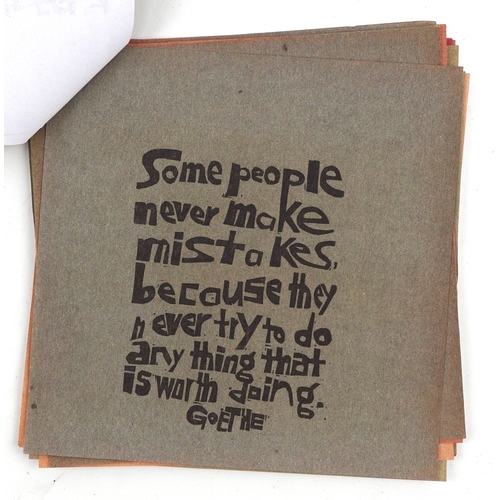 Some people
never make
mistakes,
because they
never try to do
any thing that
is worth doing.
GOETHE